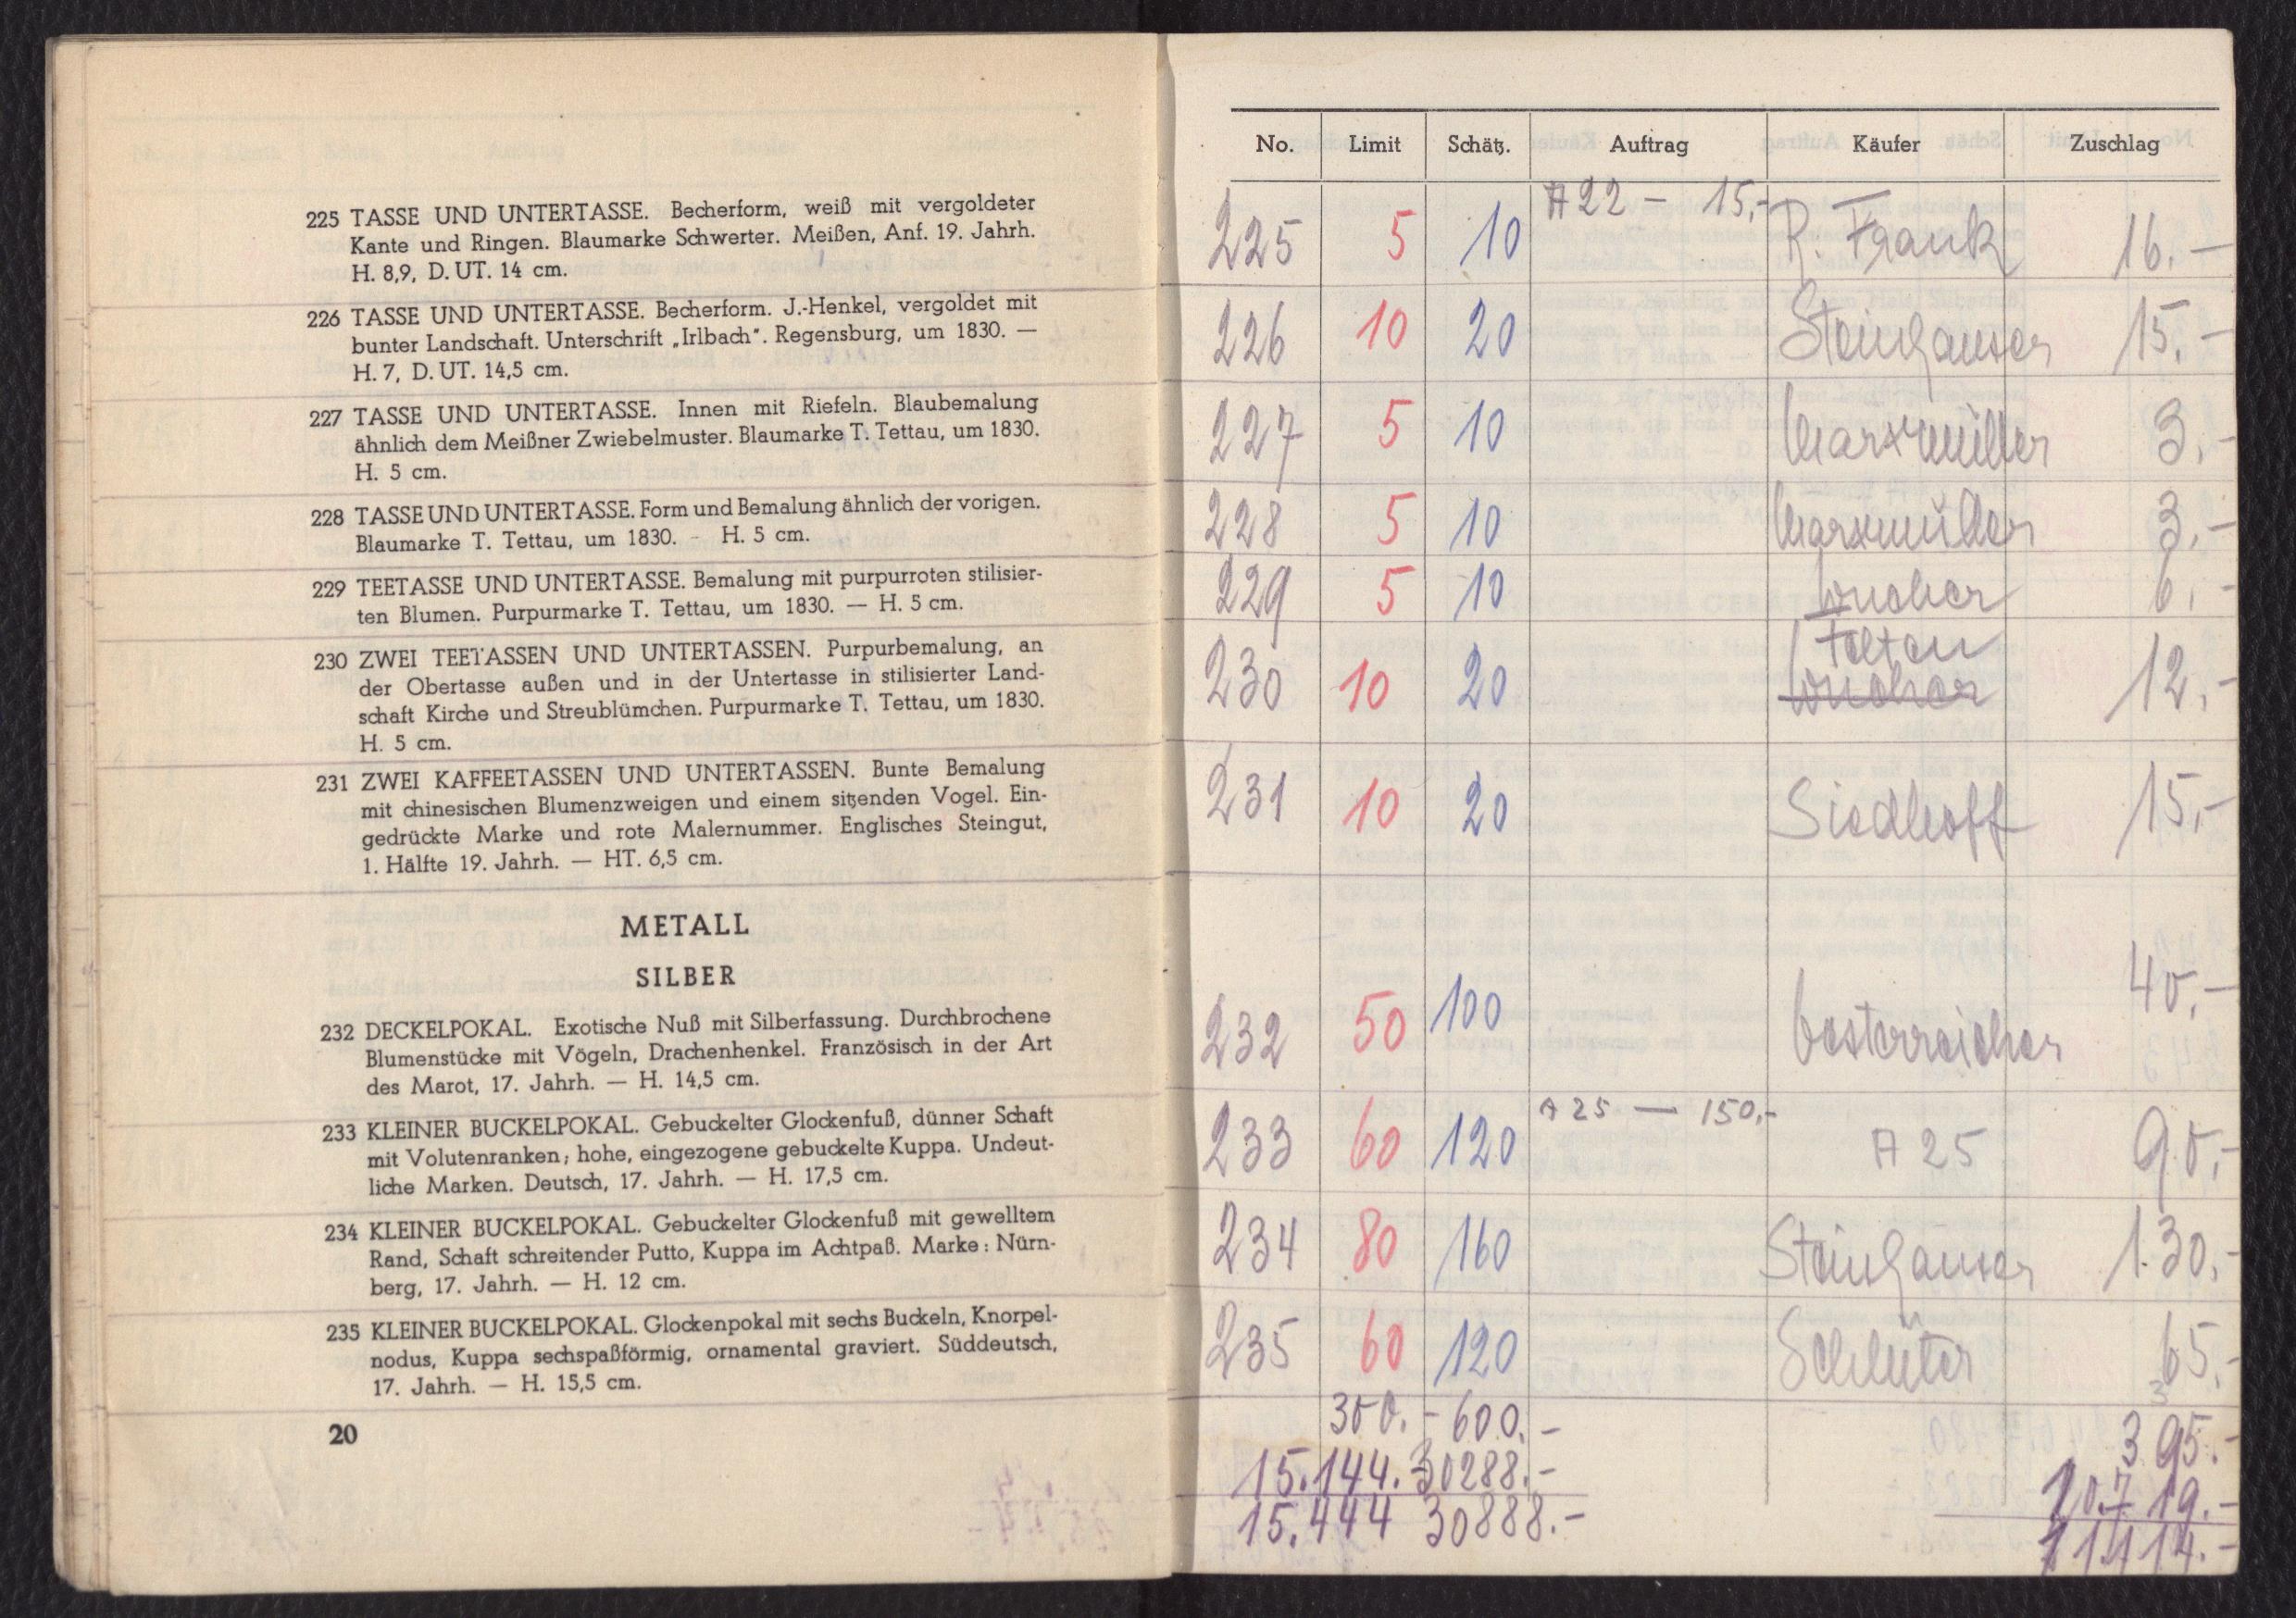 225 TASSE UND UNTERTASSE. Becherform, weiß mit vergoldeter
Kante und Ringen. Blaumarke Schwerter. Meißen, Anf. 19. Jahrh.
H. 8,9, D. UT. 14 cm.
226 TASSE UND UNTERTASSE. Becherform. J.-Henkel, vergoldet mit
bunter Landschaft. Unterschrift „Irlbach". Regensburg, um 1830. —
H. 7, D. UT. 14,5 cm.
227 TASSE UND UNTERTASSE. Innen mit Riefeln. Blaubemalung
ähnlich dem Meißner Zwiebelmuster. Blaumarke T. Tettau, um 1830.
H. 5 cm.
228 TASSE UND UNTERTASSE. Form und Bemalung ähnlich der vorigen.
Blaumarke T. Tettau, um 1830. - H. 5 cm.
229 TEETASSE UND UNTERTASSE. Bemalung mit purpurroten stilisier-
ten Blumen. Purpurmarke T. Tettau, um 1830. — H. 5 cm.
230 ZWEI TEETASSEN UND UNTERTASSEN. Purpurbemalung, an
der Obertasse außen und in der Untertasse in stilisierter Land-
schaft Kirche und Streublümchen. Purpurmarke T. Tettau, um 1830.
H. 5 cm.
231 ZWEI KAFFEETASSEN UND UNTERTASSEN. Bunte Bemalung
mit chinesischen Blumenzweigen und einem sitzenden Vogel. Ein-
gedrückte Marke und rote Malernummer. Englisches Steingut,
1. Hälfte 19. Jahrh. — HT. 6,5 cm.
METALL
SILBER
232 DECKELPOKAL. Exotische Nuß mit Silberfassung. Durchbrochene
Blumenstücke mit Vögeln, Drachenhenkel. Französisch in der Art
des Marot, 17. Jahrh. — H. 14,5 cm.
233 KLEINER BUCKELPOKAL. Gebuckelter Glockenfuß, dünner Schaft
mit Volutenranken; hohe, eingezogene gebuckelte Kuppa. Undeut-
liche Marken. Deutsch, 17. Jahrh. — H. 17,5 cm.
234 KLEINER BUCKELPOKAL. Gebuckelter Glockenfuß mit gewelltem
Rand, Schaft schreitender Putto, Kuppa im Achtpaß. Marke: Nürn-
berg, 17. Jahrh. — H. 12 cm.
235 KLEINER BUCKELPOKAL. Glockenpokal mit sechs Buckeln, Knorpel-
nodus, Kuppa sechspaßförmig, ornamental graviert. Süddeutsch,
17. Jahrh. — H. 15,5 cm.
20
No. Limit Schätz. Auftrag Käufer Zuschlag
A 22 — 15,-
225 5 10 R. Frank 16.—
226 10 20 Steinhauser 15.—
227 5 10 Marxmüller 3,-
228 5 10 Marxmüller 3,-
229 5 10 6,-
230 10 20 12,-
231 10 20 Siedhoff 15,-
232 50 100 Oesterreicher 40,-
A 25 — 150,-
233 60 120 A 25 90,-
234 80 160 Steinhauser 130,-
235 60 120 Schlüter 65,-
300.- 600.-
395.-
15.144.- 30288.-
15.444 30888.-